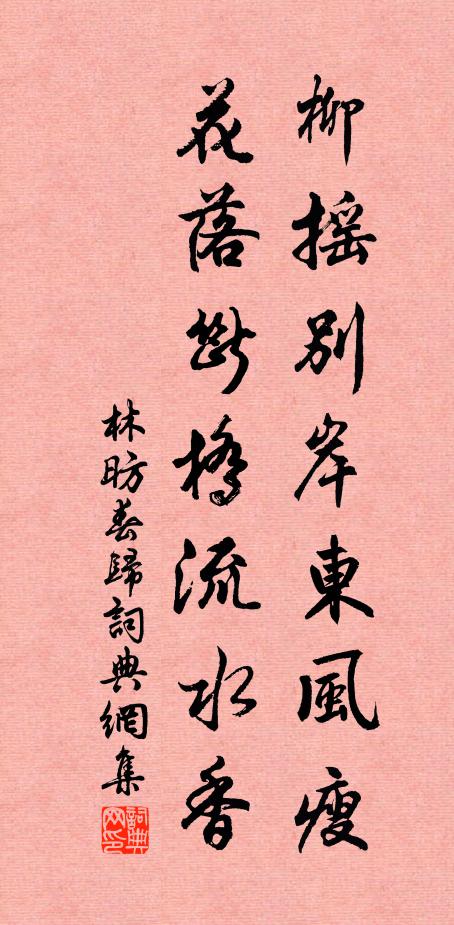 柳摇別岸東風瘦
花落斷橋流水香
林昉春歸詞典網集
詞典网印